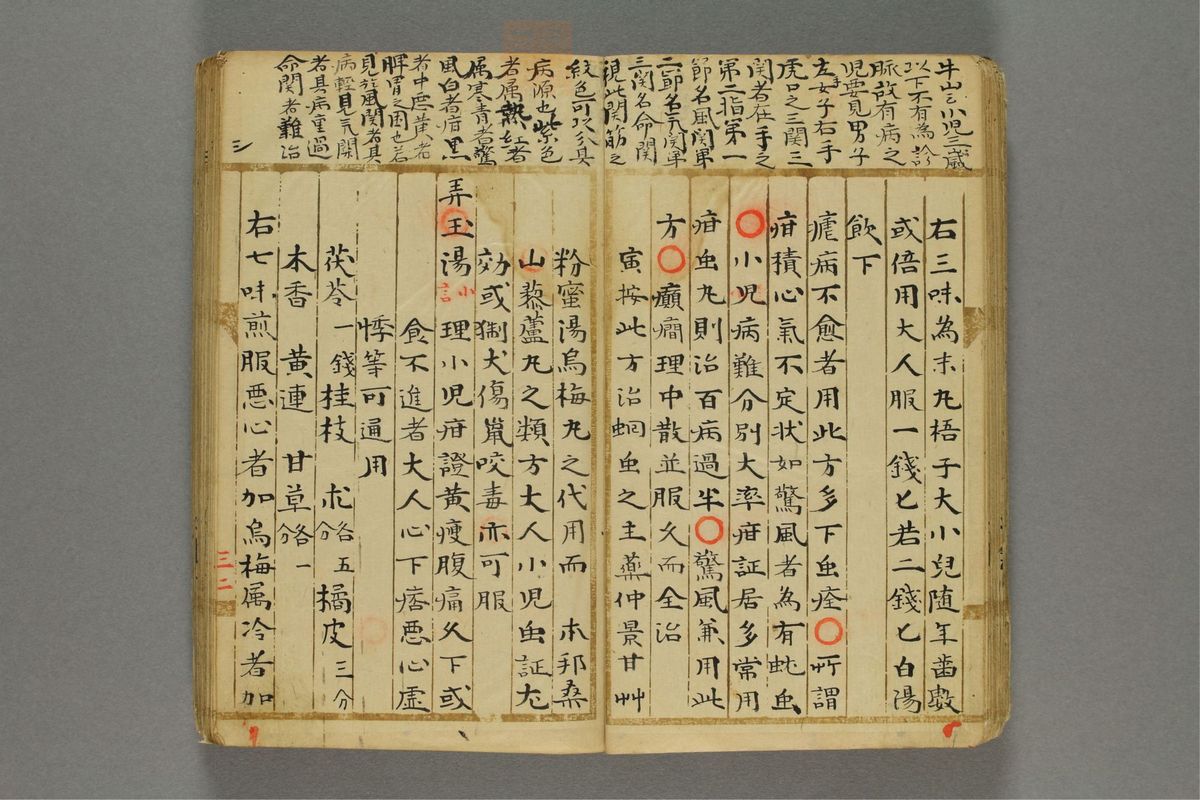 牛山云小児三歳
以下不有為診
脈故有病之
児要見男子
左手女子右手
虎口之三関三
関者在手之
第二指第一
節名風関第
二節名元関第
三関名命関
視此関筋之
紋色可以分其
病源也紫色
者属熱紅者
属寒青者驚
風白者疳黒
者中悪黄者
脾胃之困也若
見於風関者其
病軽見元関
者其病重過
命関者難治
右三味為末丸梧子大小兒随年歯數
或倍用大人服一錢匕若二錢匕白陽
飲下
瘧病不愈者用此方多下虫痊〇所謂
疳積心氣不定状如驚風者為有蚘虫
〇小児病難分別大率疳証居多常用
疳虫丸則治百病過半〇驚風兼用此
方〇癲癇理中散並服久而全治
寅按此方治蛔虫之主藥仲景甘艸
粉蜜湯烏梅丸之代用而 本邦桑
山藜蘆丸之類方大人小児虫証尤
効或猘犬傷鼠咬毒亦可服
弄玉湯 小言 理小児疳證黄瘦腹痛久下或
食不進者大人心下痞悪心虚
悸等可通用
茯苓一錢桂枝 朮各五分 橘皮三分
木香 黄連 甘草各一分
右七味煎服悪心者加烏梅属冷者加
三
三二